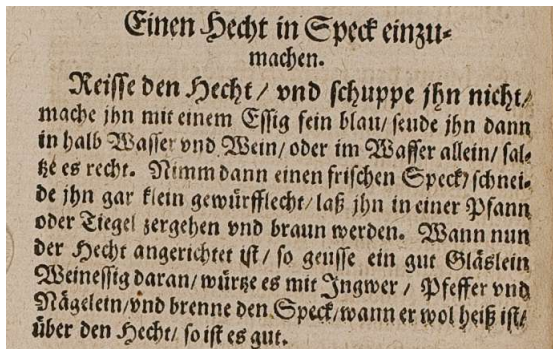 Einen Hecht in Speck einzu-
machen.
Reisse den Hecht / vnd schuppe jhn nicht/
mache jhn mit einem Essig fein blau/ seude jhn dann
in halb Wasser vnd Wein/ oder im Wasser allein/ sal-
tzé es recht. Nimm dann einen frischen Speck/ schnei-
de jhn gar klein gewürfflecht/ laß jhn in einer Pfann
oder Tiegel zergehen vnd braun werden. Wann nun
der Hecht angerichtet ist/ so geusse ein gut Gläslein
Weinessig daran/ würtze es mit Ingwer / Pfeffer vnd
Nägelein/ vnd brenne den Speck/ wann er wol heiß ist/
über den Hecht/ so ist es gut.